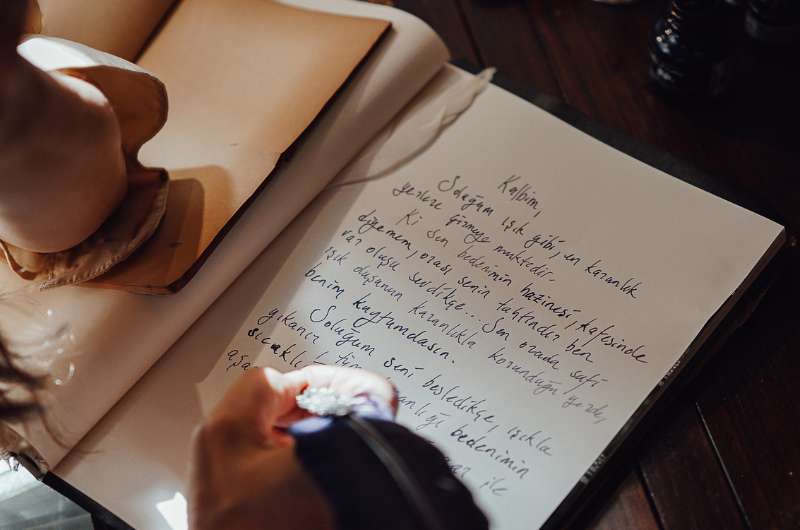 Kalbim,
Soluğum ışık gibi, en karanlık
yerlere girmeye muktedir.
Ki sen bedenimin hazinesi, kafesinde
diyemem, orası senin tahtındır ben
var oluşu sevdikçe... Sen orada safi
ışık duşanan karanlıkla korunduğu yerde,
benim kaytumdasın.
Soluğum seni besledikçe, ışıkla
yıkanır
sıcaklı
bedenimin
ile